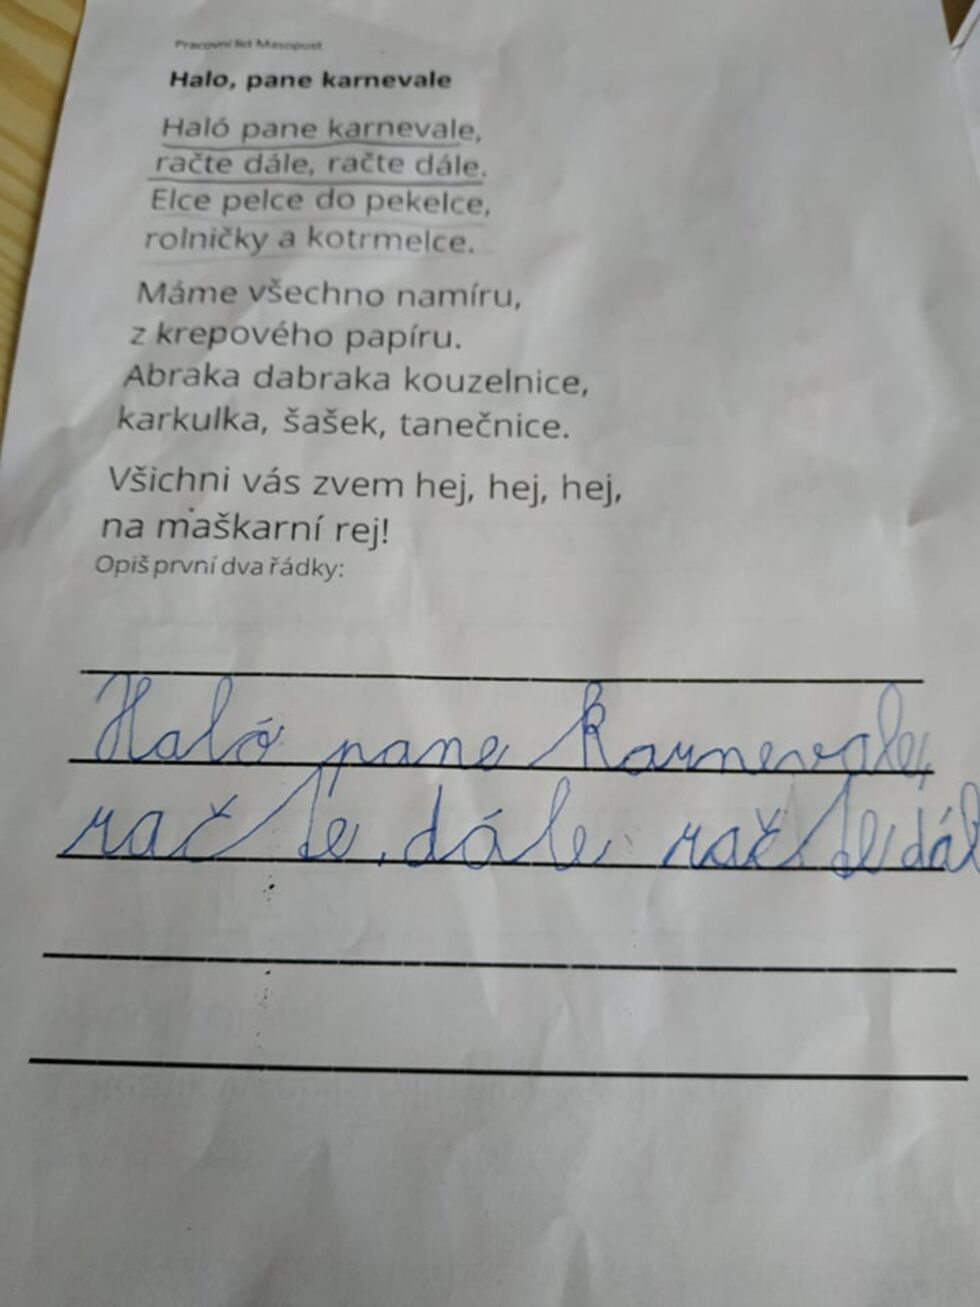 Pracovní list Masopust
Halo, pane karnevale
Haló pane karnevale,
račte dále, račte dále.
Elce pelce do pekelce,
rolničky a kotrmelce.
Máme všechno namíru,
z krepového papíru.
Abraka dabraka kouzelnice,
karkulka, šašek, tanečnice.
Všichni vás zvem hej, hej, hej,
na maškarní rej!
Opiš první dva řádky:
Haló pane karnevale,
račte, dále račte dál